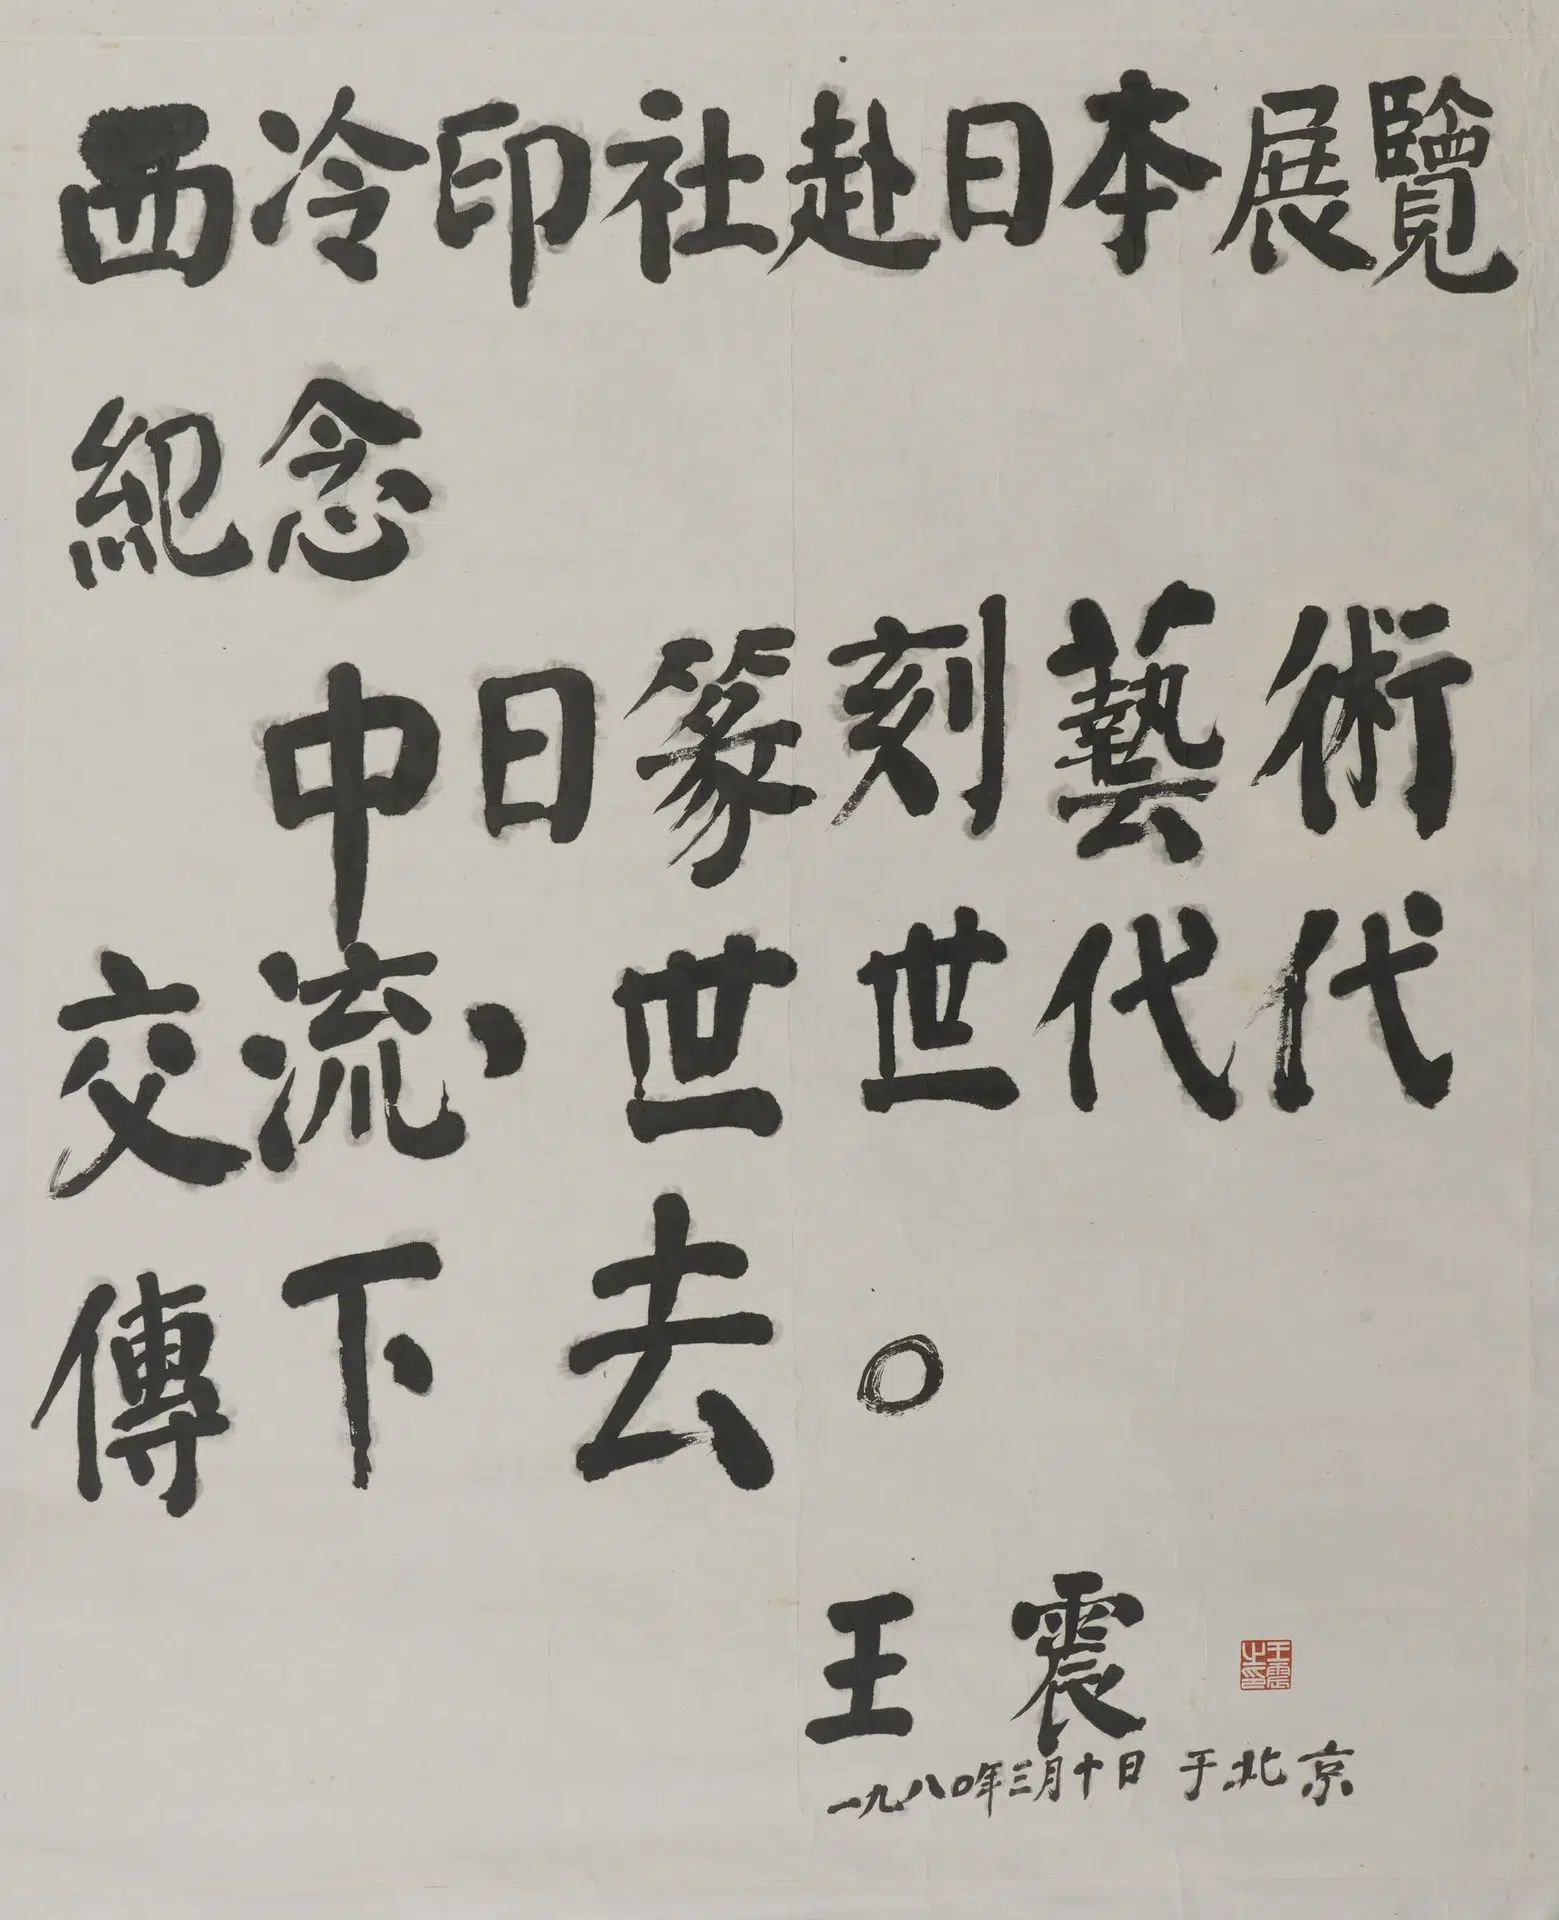 西冷印社赴日本展覽
紀念
中日篆刻藝術
交流、世世代代
傳下去。
王震
一九八〇年三月十日于北京
王震之印